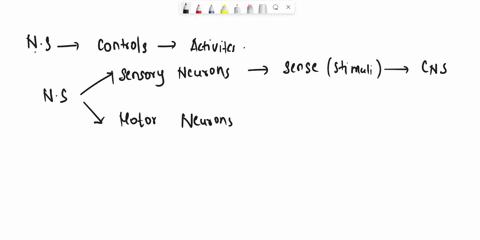 N.S → Controls → Activites.
Sensory Neurons → Sense (Stimuli) → CNS
N.S
Motor Neurons